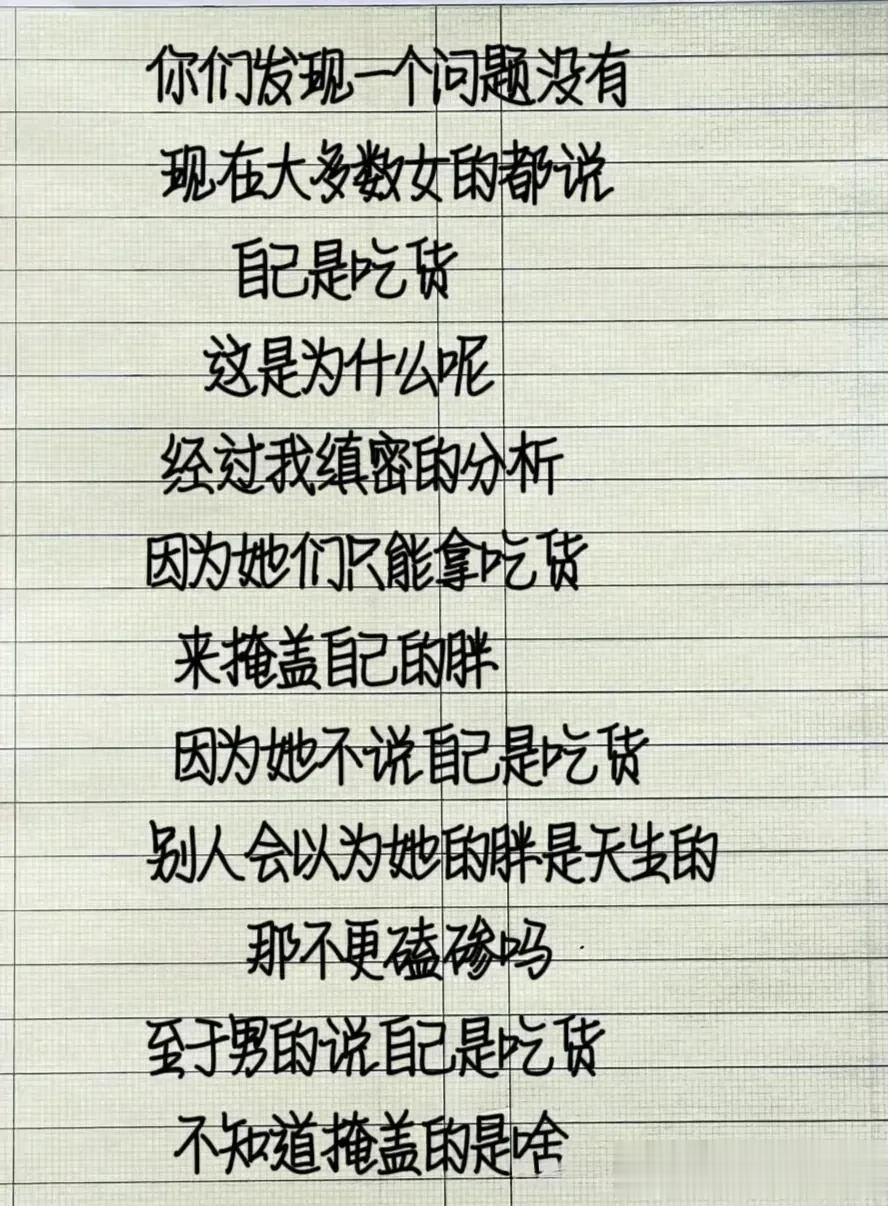 你们发现一个问题没有
现在大多数女的都说
自己是吃货
这是为什么呢
经过我缜密的分析
因为她们只能拿吃货
来掩盖自己的胖
因为她不说自己是吃货
别人会以为她的胖是天生的
那不更磕碜吗
至于男的说自己是吃货
不知道掩盖的是啥